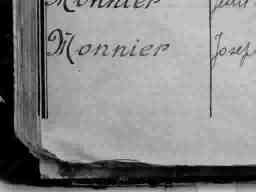 Monnier
Monnier Josep